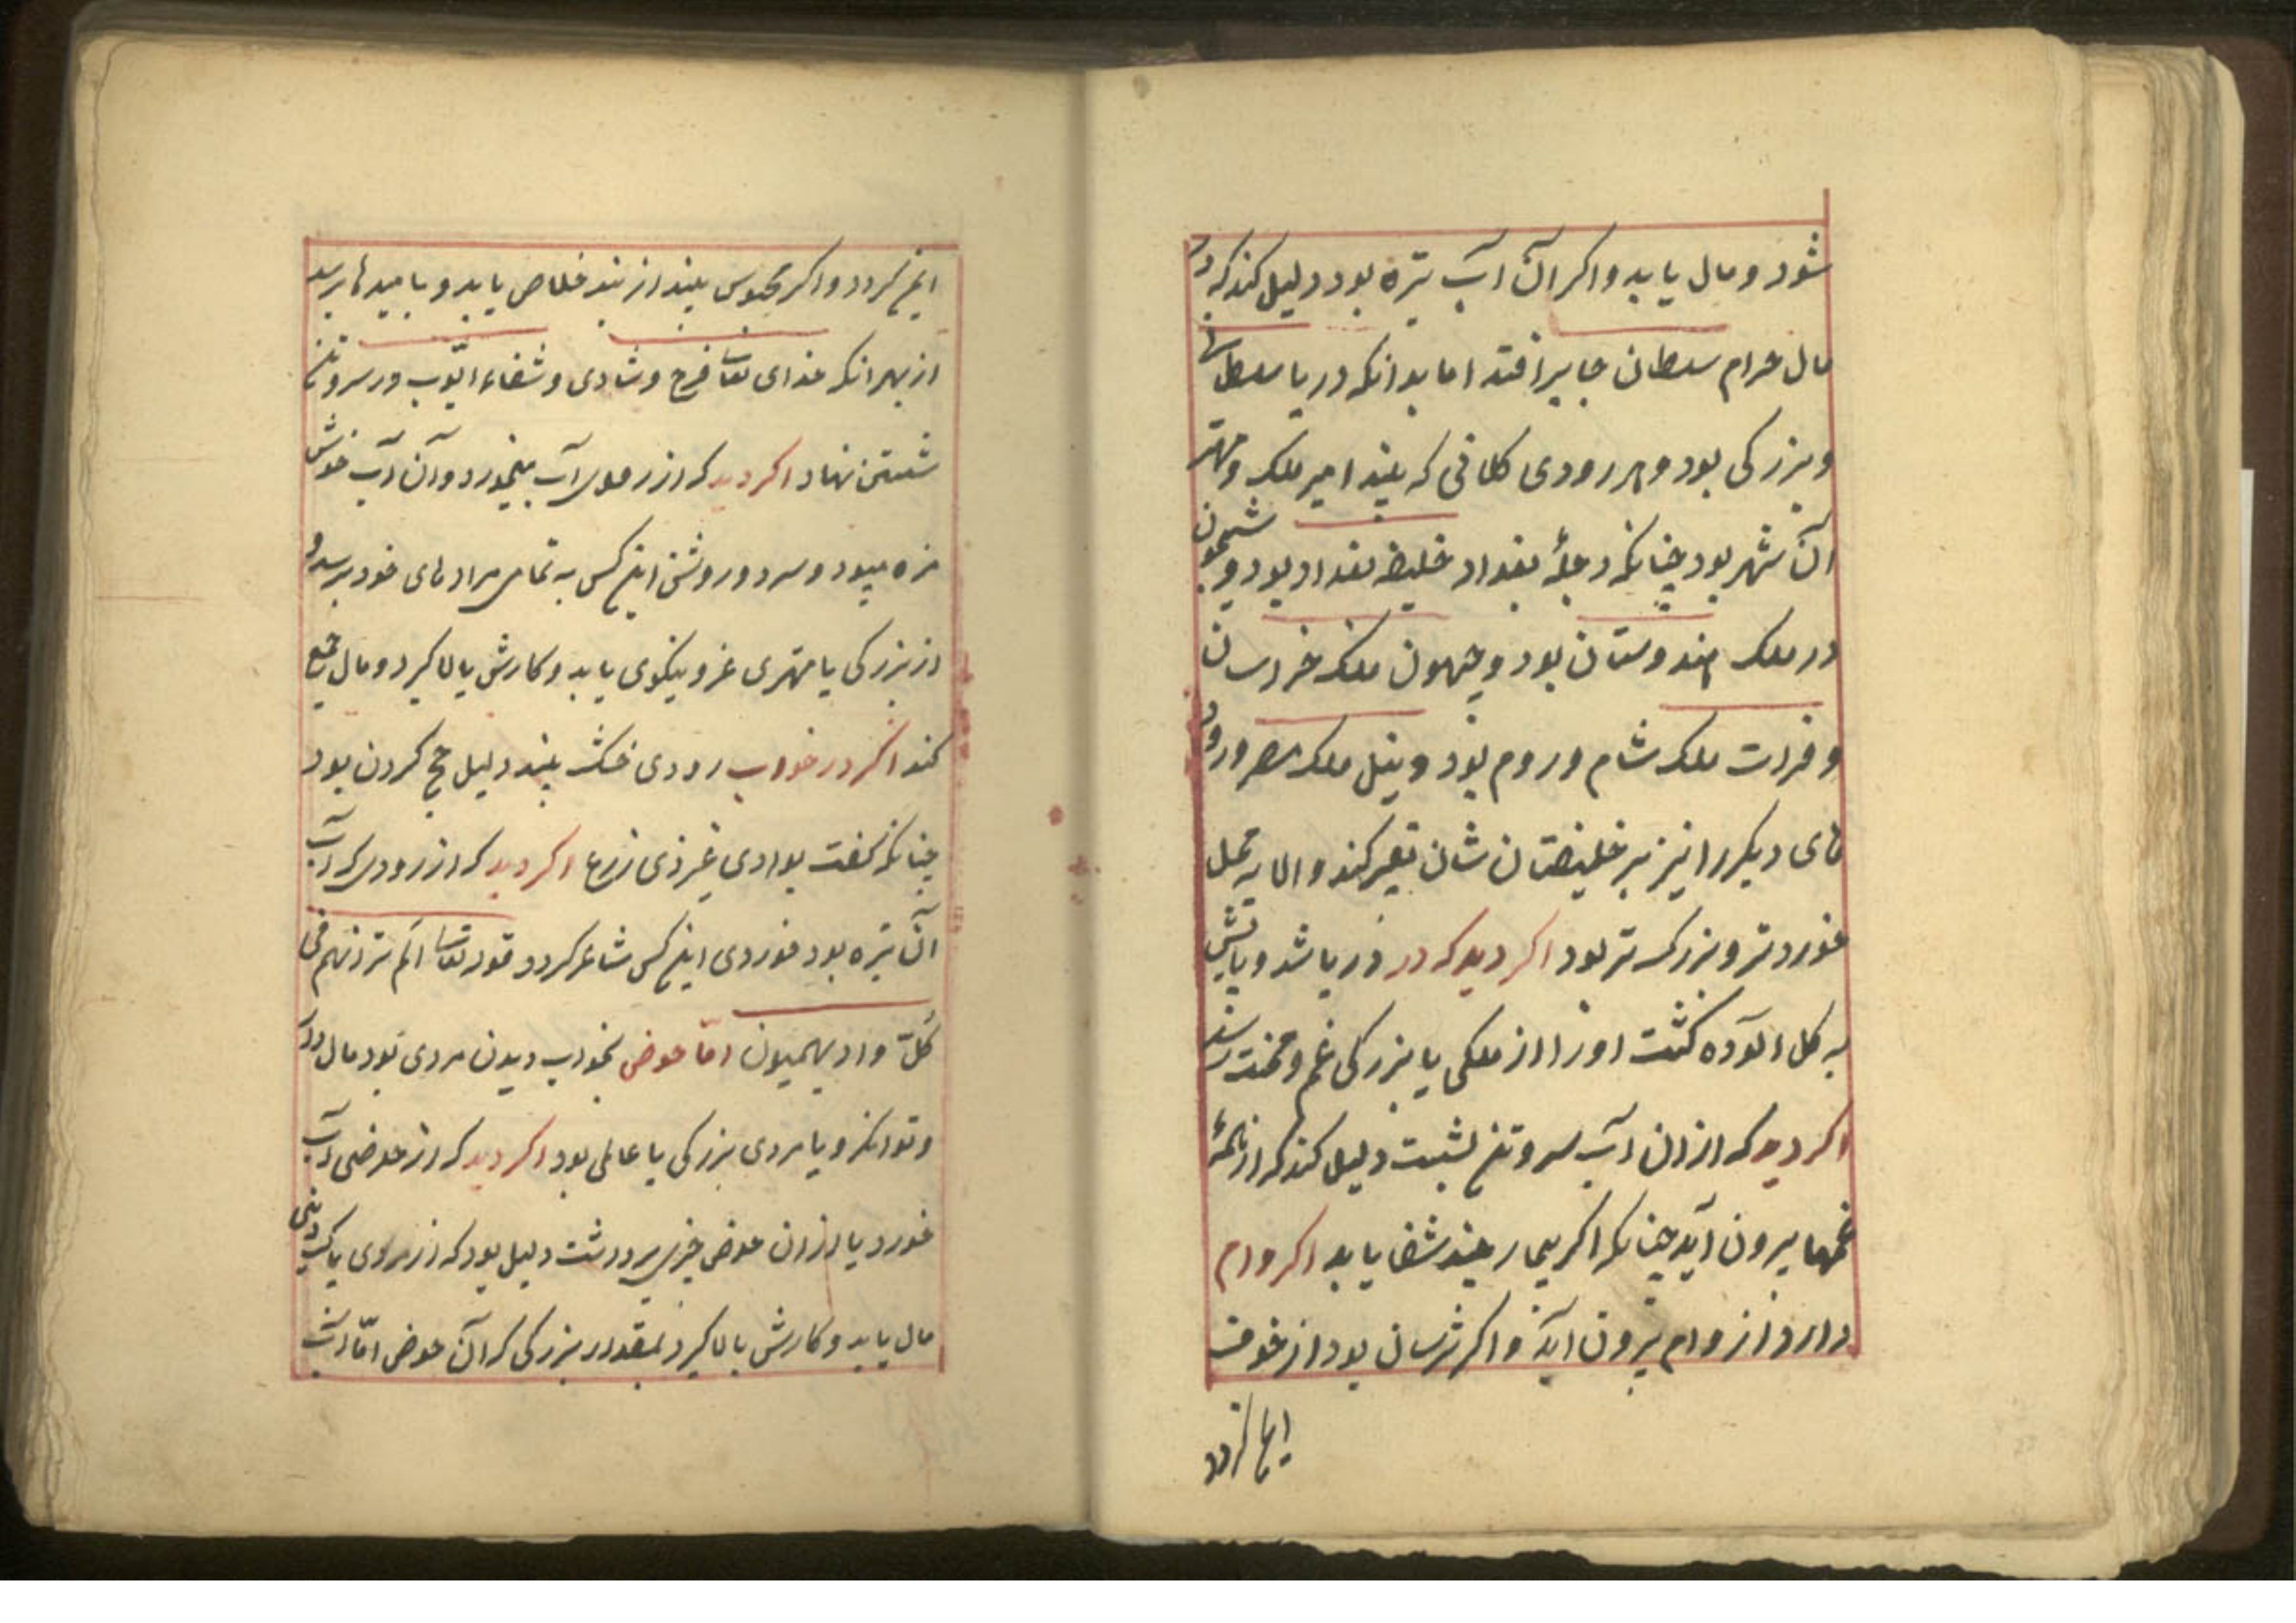 شود و مال یابد و اکر آن آب تیره بود دلیل کند که در
مال حرام سلطان جابر افتد اما بدانکه دریا سلطانی
و بزرکی بود و هر رودی کلانی که بیند امیر ملک و مهتر
آن شهر بود چنانکه دجلهٔ بغداد خلیفه بغداد بود و سیحون
در ملک هندوستان بود و جیهون ملک خراسان
و فرات ملک شام و روم بود و نیل ملک مصر و رود
های دیکر را نیز بر خلیفتان شان تعبیر کند و الا به محل
خورد تر و بزرک تر بود اکر دید که در دریا شد و پایش
به کل آلوده کشت او را از ملکی یا بزرکی غم و محنت رسد
اکر دید که از ان آب سر و تن بشست دلیل کند که از همهٔ
غمها بیرون آید چنانکه اکر بیمار بیند شفا یابد اکر وام
دارد از وام بیرون آید و اکر ترسان بود از خوف
ایمن کردد
ایمن کردد و اکر محبوس بیند از بند خلاص یابد و بامیدها برسد
از بهر آنکه خدای تعا فرح و شادی و شفاء ایّوب در سر و تن
شستن نهاد اکر دید که از رودی آب میخورد و آن آب خوش
مزه میبود و سرد و روشن این کس به تمامی مرادهای خود برسد و
از بزرکی یا مهتری عز و نیکوی یابد و کارش بالا کیرد و مال جمع
کند اکر در خواب رودی خشک بیند دلیل حج کردن بود
چنانکه کفت بوادی غیر ذی زرع اکر دید که از رودی که آب
آن تیره بود خوردی این کس شاعر کردد قوله تعا الم تر انهم فی
کلّ واد یهیمون امّا حوض بخواب دیدن مردی بود مال دار
و توانکر و یا مردی بزرکی یا عالمی بود اکر دید که از حوضی آب
خورد یا از ان حوض چیزی برداشت دلیل بود که از مردی پاک دینی
مال یابد و کارش بالا کیرد بمقدار بزرکی کر آن حوض امّا آب